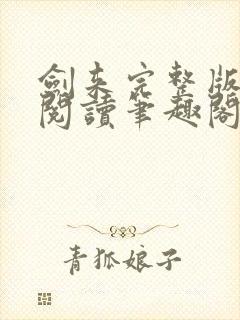 劍来完整版
閱讀筆趣閣
青狐娘子